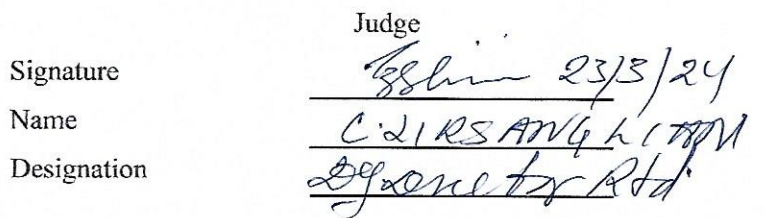 Judge
Signature 23/3/24
Name C. ZIRSANGLIANA
Designation Dy Director Rtd